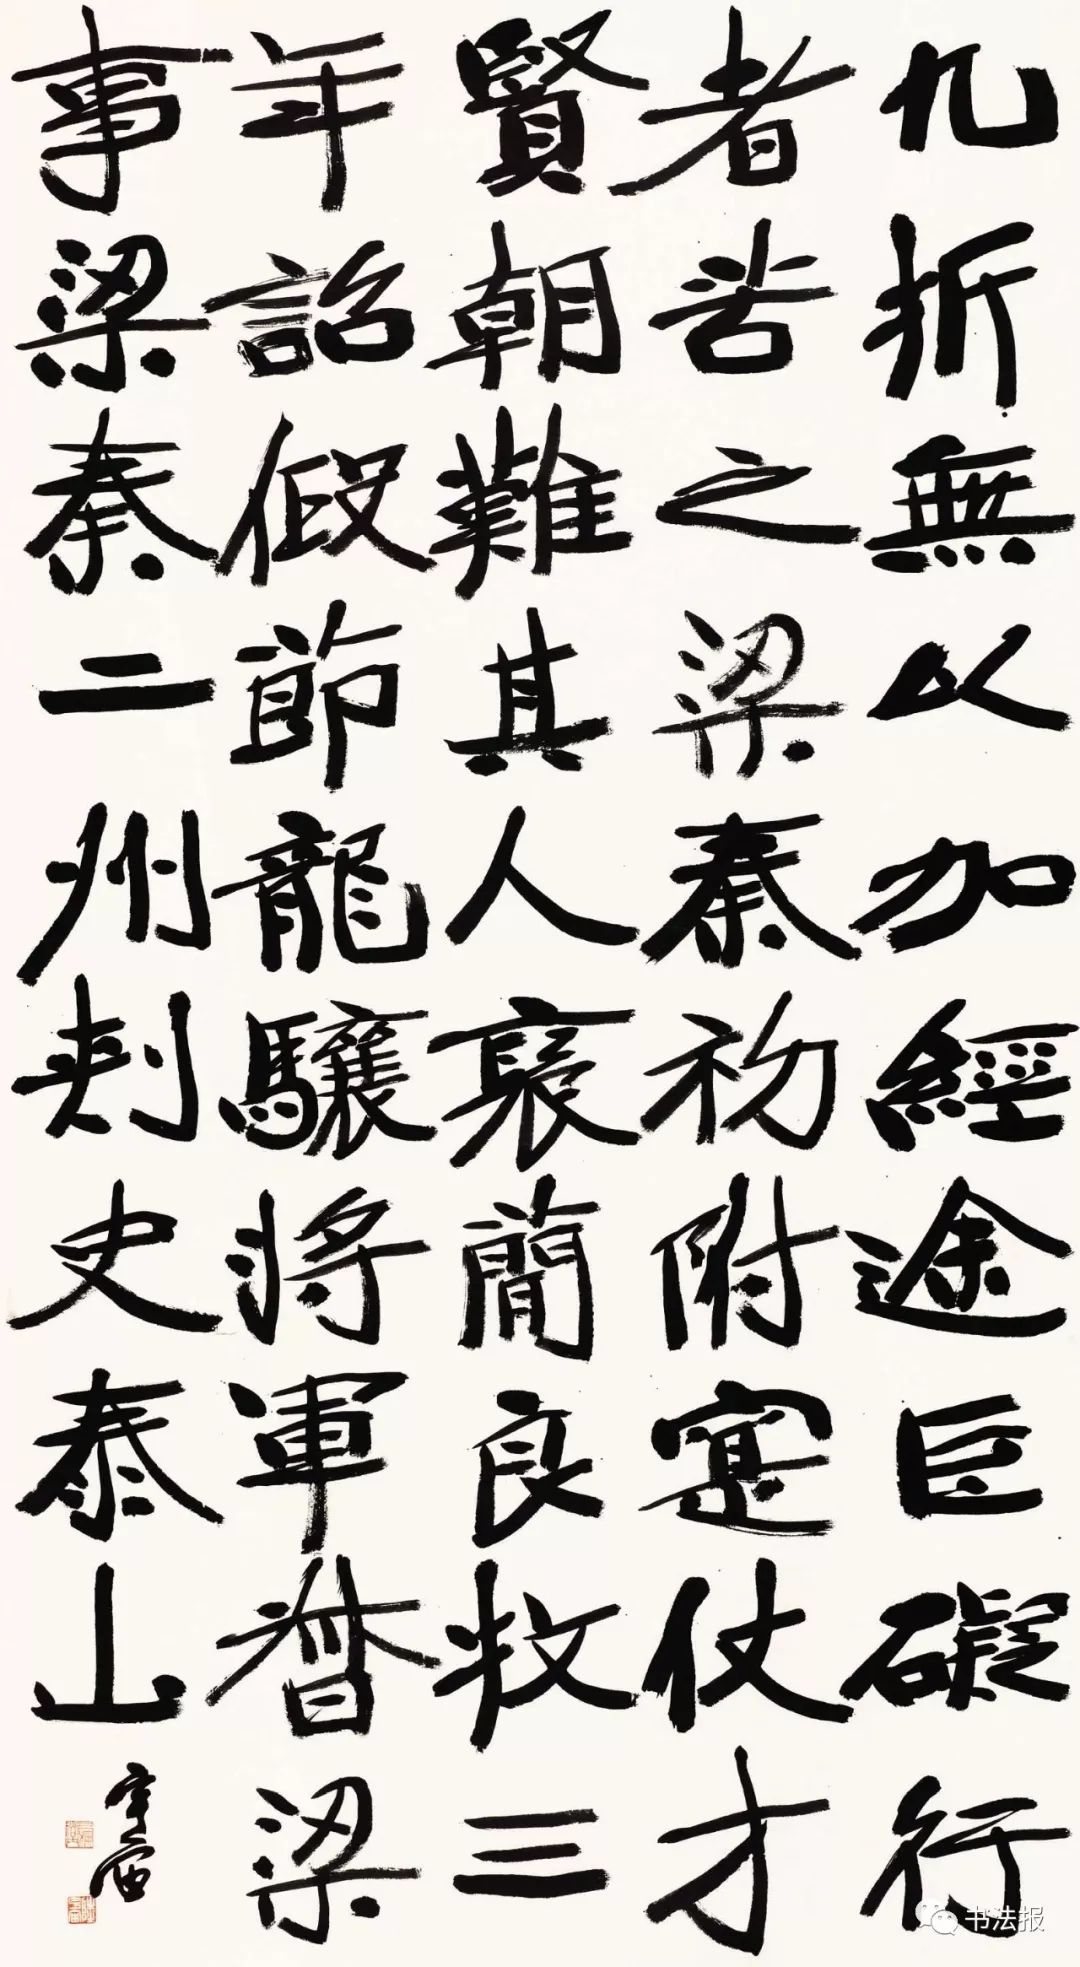 九折無以加經途巨礙行
者苦之梁秦初附寔仗才
賢朝難其人褒簡良牧三
年詔假節龍驤将軍督梁
事梁秦二州刺史泰山
书法报